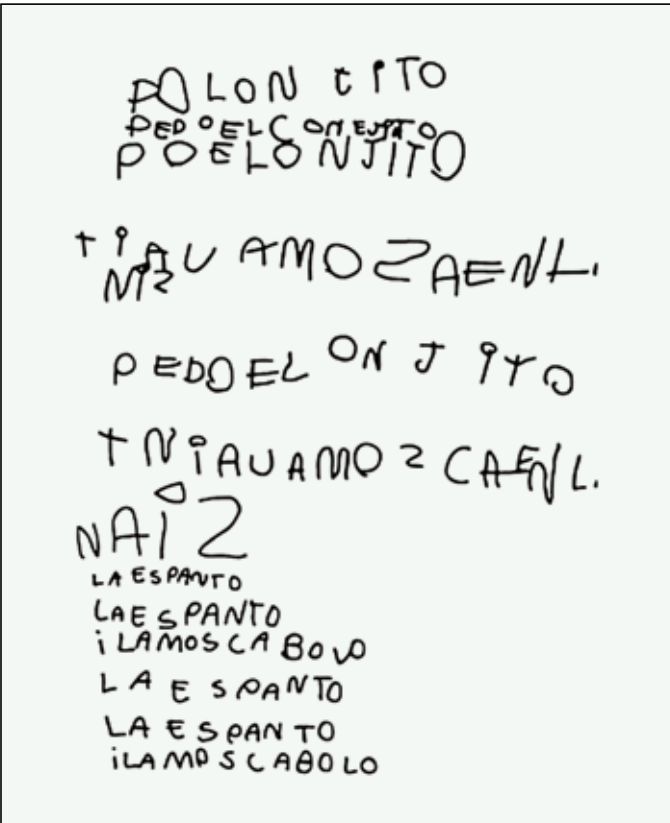 POLON CITO
PEDOELCONEJITO
POELONJITO
TIAUAMOZAENL.
NIZ
PEDOEL ONJITO
TNIAUAMOZCAENL.
NAIZ
LA ESPANTO
LAESPANTO
iLAMOSCABOLO
LA ESPANTO
LA ESPANTO
iLAMOSCABOLO